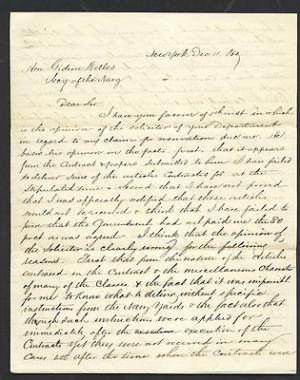 New York Dec 11
Hon Gideon Welles
Secy of the Navy
Dear Sir
I have your favor of inst in which
is the opinion of the solicitor of your Department
in regard to my claim for reservations due me. He
bases his opinion on the facts. first. that it appears
from the Contract & papers submitted to him I have failed
to deliver some of the articles Contracted for at the
Stipulated time. Second that I have not proved
that I was specially notified that those articles
would not be received & third that I have failed to
prove that the Government had not paid me the 80
per ct as was agreed. I think that the opinion of
the Solicitor is clearly wrong for the following
reasons. First that from the nature of the Articles
embraced in the Contract & the miscellaneous Character
of many of the Classes & the fact that it was impossible
for me to know what to deliver without specific
instruction from the Navy Yards & the fact also that
though such instructions were applied for
immediately after the execution of the
Contracts Yet they were not received in many
Cases till after the time when the Contracts were